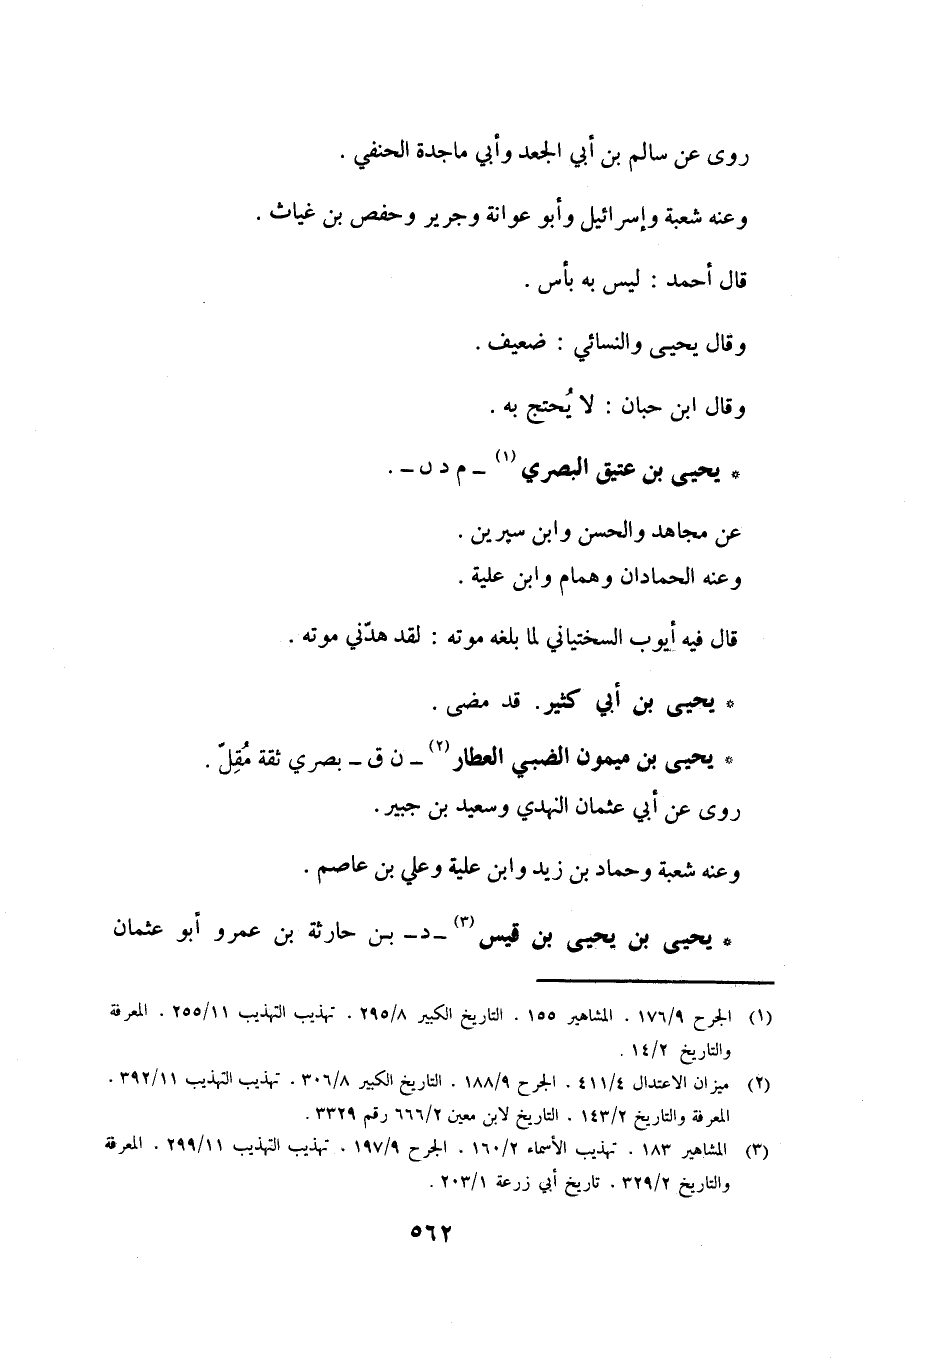 روى عن سالم بن أبي الجعد وأبي ماجدة الحنفي .
وعنه شعبة وإسرائيل وأبو عوانة وجرير وحفص بن غياث .
قال أحمد : ليس به بأس .
وقال يحيى والنسائي : ضعيف .
وقال ابن حبان : لا يُحتج به .
* يحيى بن عتيق البصري (١) ـ م د ن ـ .
عن مجاهد والحسن وابن سيرين .
وعنه الحمادان وهمام وابن علية .
قال فيه أيوب السختياني لما بلغه موته : لقد هدّني موته .
* يحيى بن أبي كثير . قد مضى .
* يحيى بن ميمون الضبي العطار (٢) ـ ن ق ـ بصري ثقة مُقِلّ .
روى عن أبي عثمان النهدي وسعيد بن جبير .
وعنه شعبة وحماد بن زيد وابن علية وعلي بن عاصم .
* يحيى بن يحيى بن قيس (٣) ـ د ـ بن حارثة بن عمرو أبو عثمان
(١) الجرح ١٧٦/٩ . المشاهير ١٥٥ . التاريخ الكبير ٢٩٥/٨ . تهذيب التهذيب ٢٥٥/١١ . المعرفة
والتاريخ ١٤/٢ .
(٢) ميزان الاعتدال ٤١١/٤ . الجرح ١٨٨/٩ . التاريخ الكبير ٣٠٦/٨ . تهذيب التهذيب ٣٩٢/١١ .
المعرفة والتاريخ ١٤٣/٢ . التاريخ لابن معين ٦٦٦/٢ رقم ٣٣٢٩ .
(٣) المشاهير ١٨٣ . تهذيب الأسماء ١٦٠/٢ . الجرح ١٩٧/٩ . تهذيب التهذيب ٢٩٩/١١ . المعرفة
والتاريخ ٣٢٩/٢ . تاريخ أبي زرعة ٢٠٣/١ .
٥٦٢